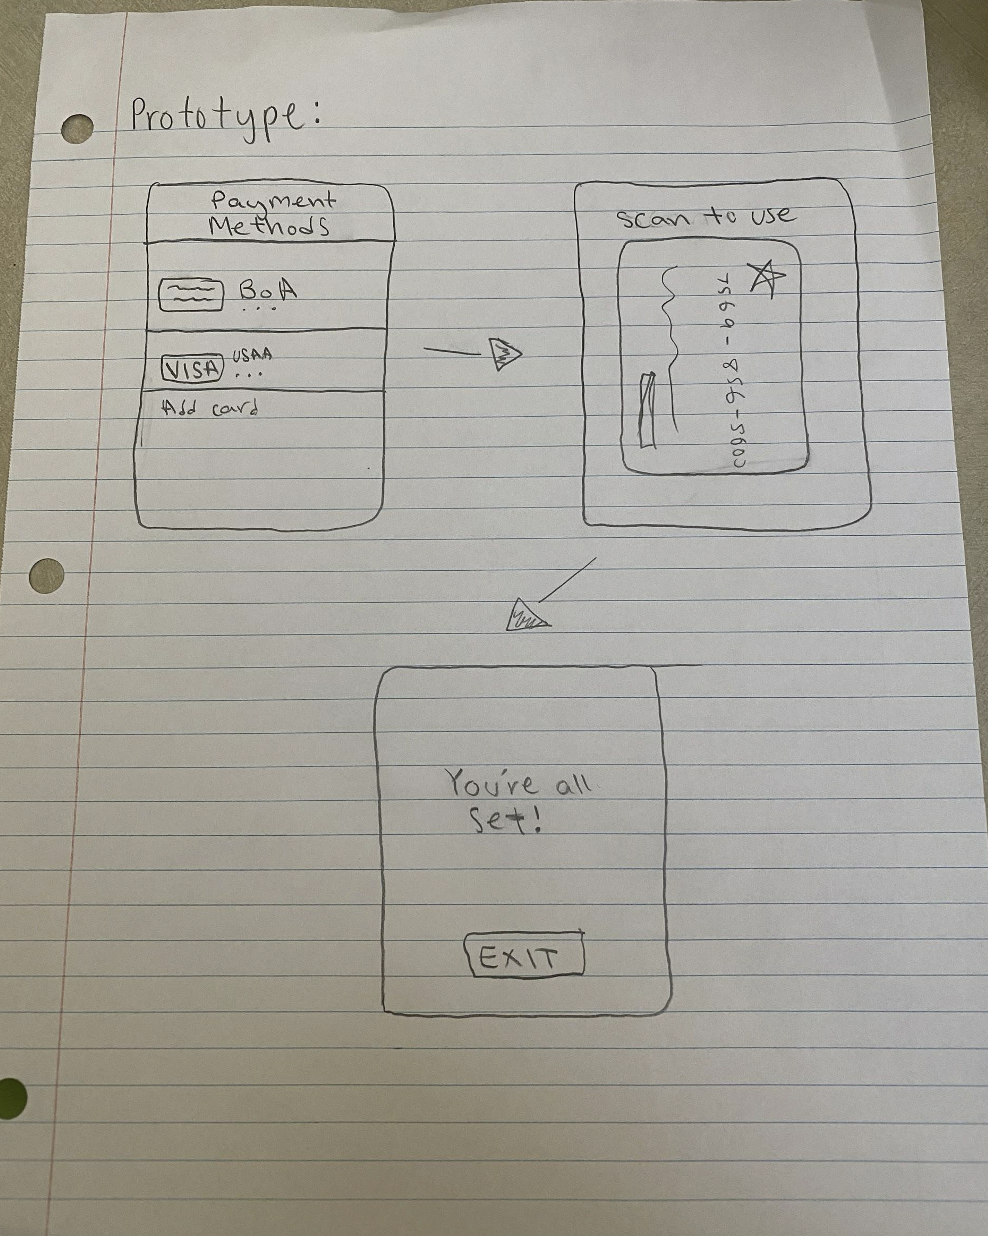 Prototype:
Payment
Methods
BoA
...
VISA
USAA
...
Add card
scan to use
You're all
set!
EXIT